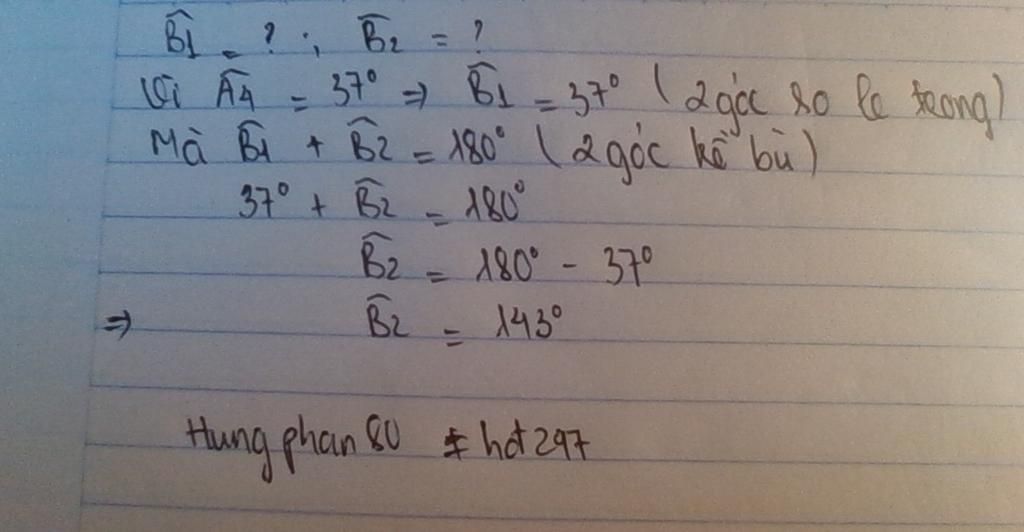 B̂1 = ? ; B̂2 = ?
Vì Â4 = 37° ⇒ B̂1 = 37° ( 2 góc so le trong)
Mà B̂1 + B̂2 = 180° ( 2 góc kề bù )
37° + B̂2 = 180°
B̂2 = 180° - 37°
⇒ B̂2 = 143°
Hung phan 80 hot297